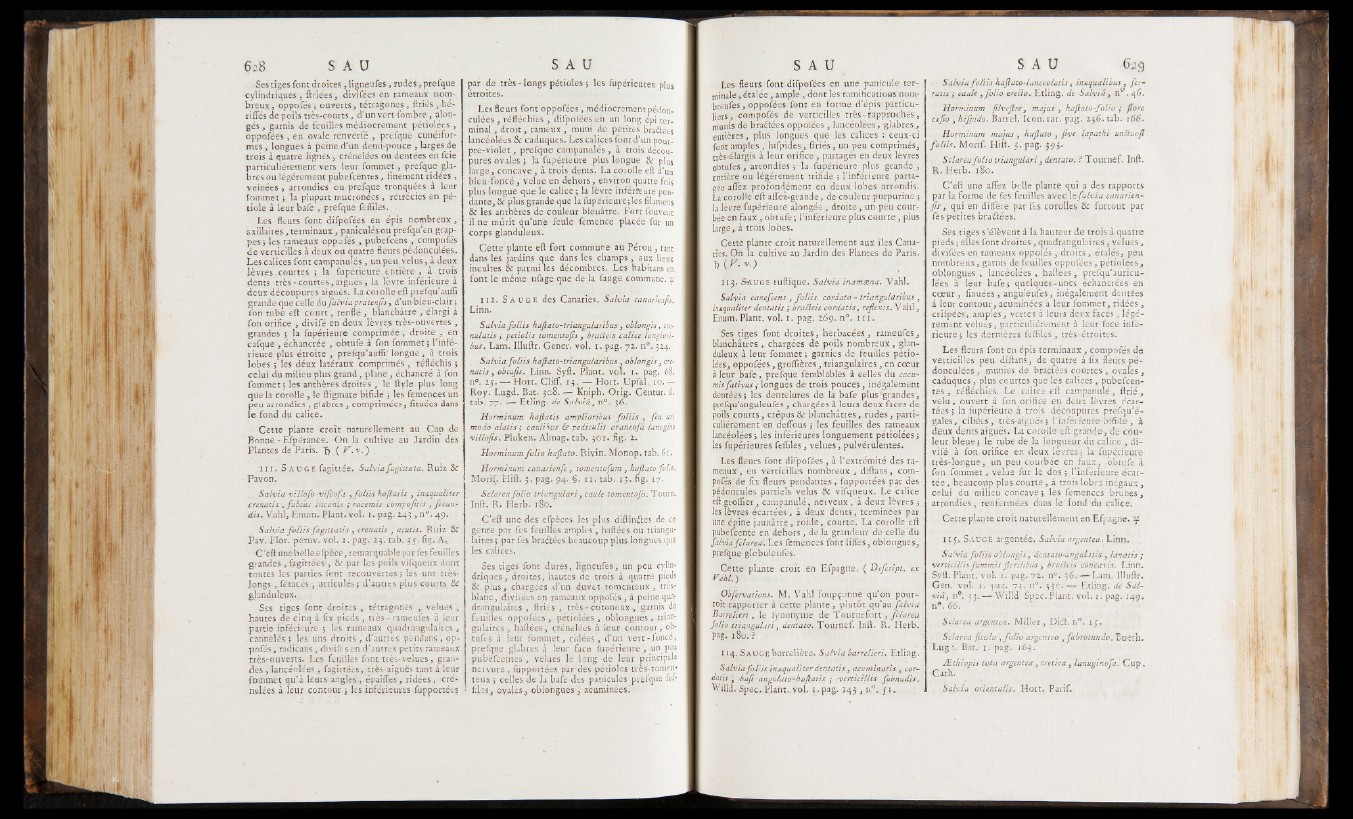 628 S A U
Ses tiges font droites, ligneuſes, rudes, preſque
cylindriques, ſtriées, diviſées en rameaux nom-
breux, oppoſés, ouverts, tétragones, ſtriés, hé-
riſſés de poils très-courts, d'un vert-ſombre, alon-
gés, garnis de feuilles médiocrement pétiolées,
oppoſées, en ovale renverſé, preſque cunéifor-
mes, longues à peine d'un demi-pouce, larges de
trois à quatre lignes, crénelées ou dentées en ſcie
particuliérement vers leur ſommet, preſque gla-
bres ou légérement pubeſcentes, finement ridées,
veinées, arrondies ou preſque tronquées à leur
ſommet; la plupart mucronées, rétrécies en pé-
tiole à leur baſe, preſque ſeſſiles.
Les fleurs ſont diſpoſées en épis nombreux,
axillaires, terminaux, paniculés ou preſqu'en grap-
pes; les rameaux oppoſés, pubeſcens, compoſés
de verticilles à deux ou quatre fleurs pédonculées.
Les calices ſont campanulés, un peu velus, à deux
lèvres courtes; la ſupérieure entière, à trois
dents très-courtes, aiguës, la lèvre inférieure à
deux découpures aiguës. La corolle eſt preſqu'auſſi
grande que celle du ſalvia pratenſis, d'un bleu-clair;
ſon tube eſt court, renflé, blanchâtre, élargi à
ſon orifice, diviſé en deux lèvres très-ouvertes,
grandes; la ſupérieure comprimée, droite, en
caſque, échancrée, obtuſe à ſon ſommet; l'infé-
rieure plus étroite, preſqu'auſſi longue, à trois
lobes; les deux latéraux comprimés, réfléchis;
celui du milieu plus grand, plane, échancré à ſon
ſommet; les anthères droites, le ſtyle plus long
que la corolle, le ſtigmate bifide; les ſemences un
peu arrondies, glabres, comprimées, ſituées dans
le fond du calice.
Cette plante croît naturellement au Cap de
Bonne-Eſpérance. On la cultive au Jardin des
Plantes de Paris. ♄ (V. v.)
111. SAUGE ſagittée. Salvia ſagittata. Ruiz &
Pavon.
Salvia villoſo-viſcoſa, foliis haſtatis, inaqualiter
crenatis, ſubtùs incanis; racemis compoſitis, ſecun-
dis. Vahl, Enum. Plant. vol. 1. pag. 243, n°. 49.
Salvia foliis ſagittatis, crenatis, acutis. Ruiz &
Pav. Flor. peruv. vol. 1. pag. 23. tab. 35. fig. A.
C'eſt une belle eſpèce, remarquable par ſes feuilles
grandes, ſagittées, & par les poils viſqueux dont
toutes les parties ſont recouvertes; les uns très-
longs, ſétacés, articulés; d'autres plus courts &
glanduleux.
Ses tiges ſont droites, tétragones, velues,
hautes de cinq à ſix pieds, très-rameuſes à leur
partie inférieure; les rameaux quadrangulaires,
cannelés; les uns droits, d'autres pendans, op-
poſés, radicans, diviſés en d'autres petits rameaux
très-ouverts. Les feuilles ſont très-velues, gran-
des, lancéolées, ſagittées, très-aiguës tant à leur
ſommet qu'à leurs angles, épaiſſes, ridées, cré-
nelées à leur contour; les inférieures ſupportées
S A U
par de très-longs pétioles; les ſupérieures plus
étroites.
Les fleurs ſont oppoſées, médiocrement pédon-
culées, réfléchies, diſpoſées en un long épi ter-
minal, droit, rameux, muni de petites bractées
lancéolées & caduques. Les calices ſont d'un pour-
pre-violet, preſque campanulés, à trois décou-
pures ovales; la ſupérieure plus longue & plus
large, concave, à trois dents. La corolle eſt d'un
bleu-foncé, velue en dehors, environ quatre fois
plus longue que le calice; la lèvre inférieure pen-
dante, & plus grande que la ſupérieure; les filamens
& les anthères de couleur bleuâtre. Fort ſouvent
il ne mûrit qu'une ſeule ſemence placée ſur un
corps glanduleux.
Cette plante eſt fort commune au Pérou, tant
dans les jardins que dans les champs, aux lieux
incultes & parmi les décombres. Les habitans en
font le même uſage que de la ſauge commune. ♃
112. SAUGE des Canaries. Salvia canarienſis.
Linn.
Salvia foliis haſtato-triangularibus, oblongis, cre-
nulatis; petiolis tomentoſis, bracteis calice longiori-
bus. Lam. Illuſtr. Gener. vol. 1. pag. 72. n°. 324.
Salvia foliis haſtato-triangularibus, oblongis, cre-
natis, obtuſis. Linn. Syſt. Plant. vol. 1. pag. 68.
n°. 25. — Hort. Cliff. 13. — Hort. Upſal. 10. —
Roy. Lugd. Bat. 308. — Kniph. Orig. Centur. 6.
tab. 77. — Etling. de Salviâ, n°. 36.
Horminum haſtatis amplioribus foliis, ſeu ari
modo alatis; caulibus & pediculis araneoſâ lanugine
villoſis. Pluken. Almag. tab. 301. fig. 2.
Horminum folio haſtato. Rivin. Monop. tab. 61.
Horminum canarienſe, tomentoſum, haſtato folio.
Moriſ. Hiſt. 3. pag. 94. §. 11. tab. 13. fig. 17.
Sclarea folio triangulari, caule tomentoſo. Tourn.
Inſt. R. Herb. 180.
C'eſt une des eſpèces les plus diſtinctes de ce
genre par ſes feuilles amples, haſtées ou triangu-
laires; par ſes bractées beaucoup plus longues que
les calices.
Ses tiges ſont dures, ligneuſes, un peu cylin-
driques, droites, hautes de trois à quatre pieds
& plus, chargées d'un duvet tomenteux, très-
blanc, diviſées en rameaux oppoſés, à peine qua-
drangulaires, ſtriés, très-cotoneux, garnis de
feuilles oppoſées, pétiolées, oblongues, trian-
gulaires, haſtées, crénelées à leur contour, ob-
tuſes à leur ſommet, ridées, d'un vert-foncé,
preſque glabres à leur face ſupérieure, un peu
pubeſcentes, velues le long de leur principale
nervure, ſupportées par des pétioles très-tomen-
teux; celles de la baſe des panicules preſque ſeſ-
ſiles, ovales, oblongues, acuminées.
S A U
Les fleurs ſont diſpoſées en une panicule ter-
minale, étalée, ample, dont les ramifications nom-
breuſes, oppoſées ſont en forme d'épis particu-
liers, compoſés de verticilles très-rapprochés,
munis de bractées oppoſées, lancéolées, glabres,
entières, plus longues que les calices: ceux-ci
ſont amples, hiſpides, ſtriés, un peu comprimés,
très-élargis à leur orifice, partagés en deux lèvres
obtuſes, arrondies; la ſupérieure plus grande,
entière ou légérement trifide; l'inférieure parta-
gée aſſez profondément en deux lobes arrondis.
La corolle eſt aſſez-grande, de couleur purpurine;
la lèvre ſupérieure alongée, droite, un peu cour-
bée en faux, obtuſe; l'inférieure plus courte, plus
large, à trois lobes.
Cette plante croît naturellement aux îles Cana-
ries. On la cultive au Jardin des Plantes de Paris.
♄ (V. v.)
113. SAUGE ruſtique. Salvia inamœna. Vahl.
Salvia caneſcens, foliis cordato-triangularibus,
inæqualiter dentatis; bracteis cordatis, reflexis. Vahl,
Enum. Plant. vol. 1. pag. 269. n°. 111.
Ses tiges ſont droites, herbacées, rameuſes,
blanchâtres, chargées de poils nombreux, glan-
duleux à leur ſommet; garnies de feuilles pétio-
lées, oppoſées, groſſières, triangulaires, en cœur
à leur baſe, preſque ſemblables à celles du cucu-
mis ſativus; longues de trois pouces, inégalement
dentées; les dentelures de la baſe plus grandes,
preſqu'anguleuſes, chargées à leurs deux faces de
poils courts, crépus & blanchâtres, rudes, parti-
culiérement en deſſous; les feuilles des rameaux
lancéolées; les inférieures longuement pétiolées;
les ſupérieures ſeſſiles, velues, pulvérulentes.
Les fleurs ſont diſpoſées, à l'extrémité des ra-
meaux, en verticilles nombreux, diſtans, com-
poſés de ſix fleurs pendantes, ſupportées par des
pédoncules partiels velus & viſqueux. Le calice
eſt groſſier, campanulé, nerveux, à deux lèvres;
les lèvres écartées, à deux dents, terminées par
une épine jaunâtre, roide, courte. La corolle eſt
pubeſcente en dehors, de la grandeur de celle du
ſalvia ſclarea. Les ſemences ſont liſſes, oblongues,
preſque globuleuſes.
Cette plante croît en Eſpagne. (Deſcript. ex
Vahl.)
Obſervations. M. Vahl ſoupçonne qu'on pour-
roit rapporter à cette plante, plutôt qu'au ſalvia
Barrelieri, le ſynonyme de Tournefort, ſclarea
folio triangulari, dentato. Tournef. Inſt. R. Herb.
pag. 180. ?
114. SAUGE barrelière. Salvia barrelieri. Etling.
Salvia foliis inæqualiter dentatis, acuminatis, cor-
datis, baſi angulato-haſtatis; verticillis ſubnudis.
Willd. Spec. Plant. vol. 1. pag. 143, n°. 51.
S A U 629
Salvia foliis haſtato-lanceolatis, inæqualibus, ſer-
ratis; caule, folio erecto. Etling. de Salviâ, n°. 46.
Horminum ſilveſtre, majus, haſtato-folio; flore
cæſio, hiſpido. Barrel. Icon. rar. pag. 256. tab. 166.
Horminum majus, haſtato, ſive lapathi unctuoſi
foliis. Moriſ. Hiſt. 3. pag. 393.
Sclarea folio triangulari, dentato. ? Tournef. Inſt.
R. Herb. 180.
C'eſt une aſſez belle plante qui a des rapports
par la forme de ſes feuilles avec le ſalvia canarien-
ſis, qui en diffère par ſes corolles & ſurtout par
ſes petites bractées.
Ses tiges s'élèvent à la hauteur de trois à quatre
pieds; elles ſont droites, quadrangulaires, velues,
diviſées en rameaux oppoſés, droits, étalés, peu
nombreux, garnis de feuilles oppoſées, pétiolées,
oblongues, lancéolées, haſtées, preſqu'auricu-
lées à leur baſe; quelques-unes échancrées en
cœur, ſinuées, anguleuſes, inégalement dentées
à leur contour, acuminées à leur ſommet, ridées,
criſpées, amples, vertes à leurs deux faces, légé-
rement velues, particuliérement à leur face infé-
rieure; les dernières ſeſſiles, très-étroites.
Les fleurs ſont en épis terminaux, compoſés de
verticilles peu diſtans, de quatre à ſix fleurs pé-
donculées, munies de bractées courtes, ovales,
caduques, plus courtes que les calices, pubeſcen-
tes, réfléchies. Le calice eſt campanulé, ſtrié,
velu, ouvert à ſon orifice en deux lèvres écar-
tées; la ſupérieure à trois découpures preſqu'é-
gales, ciliées, très-aiguës; l'inférieure bifide, à
deux dents aiguës. La corolle eſt grande, de cou-
leur bleue; le tube de la longueur du calice, di-
viſé à ſon orifice en deux lèvres; la ſupérieure
très-longue, un peu courbée en faux, obtuſe à
ſon ſommet, velue ſur le dos; l'inférieure écar-
tée, beaucoup plus courte, à trois lobes inégaux,
celui du milieu concave; les ſemences brunes,
arrondies, renfermées dans le fond du calice.
Cette plante croît naturellement en Eſpagne. ♃
115. SAUGE argentée. Salvia argentea. Linn.
Salvia foliis oblongis, dentato-angulatis, lanatis;
verticillis ſummis ſterilibus, bracteis concavis. Linn.
Syſt. Plant. vol. 1. pag. 72. n°. 36. — Lam. Illuſtr.
Gen. vol. 1. pag. 72. n°. 330. — Etling. de Sal-
viâ, n°. 33. — Willd. Spec. Plant. vol. 1. pag. 149.
n°. 66.
Sclarea argentea. Miller, Dict. n°. 15.
Sclarea ſicula, folio argenteo, ſubrotundo. Boërh.
Lug. Bat. 1. pag. 163.
Æthiopis tota argentea, cretica, lanuginoſa. Cup.
Cath.
Salvia orientalis. Hort. Pariſ.